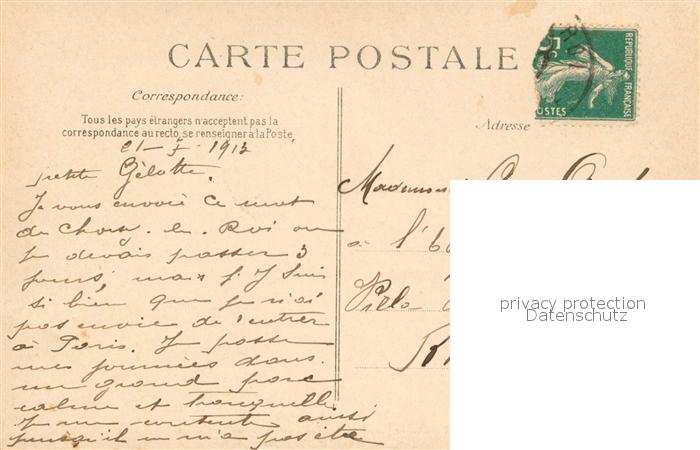 CARTE POSTALE
REPUBLIQUE FRANÇAISE
5
POSTES
Correspondance:
Tous les pays étrangers n'acceptent pas la
correspondance au recto, se renseigner à la Poste.
Adresse
21-5-1913
petite Gélotte.
Je vous envoie ce mot
de Choisy. le. Roi ou
je devais passer 3
jours, mais j'y suis
si bien que je n'ai
pas envie de rentrer
à Paris. Je passe
mes journées dans.
un grand parc
calme et tranquille
Je me contente ainsi
puisqu'il ne m'a pas été
Mademoiselle
à l'
Villa
privacy protection
Datenschutz